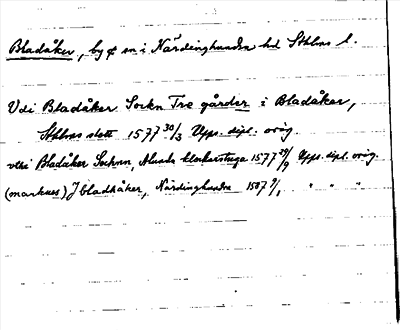 Bladåker, by & sn i Närdinghundra hd Sthlms l.
Vdi Bladåker Sockn Tre gårder i Bladåker,
Sthlms slott 1577 30/3 Upps. dipl. orig.
vthi Bladåker Sochnn, klockerstuga 1577 29/9 Upps. dipl. orig.
(marknes) J bladhåker, Närdinghundra 1507 9/1 " " "